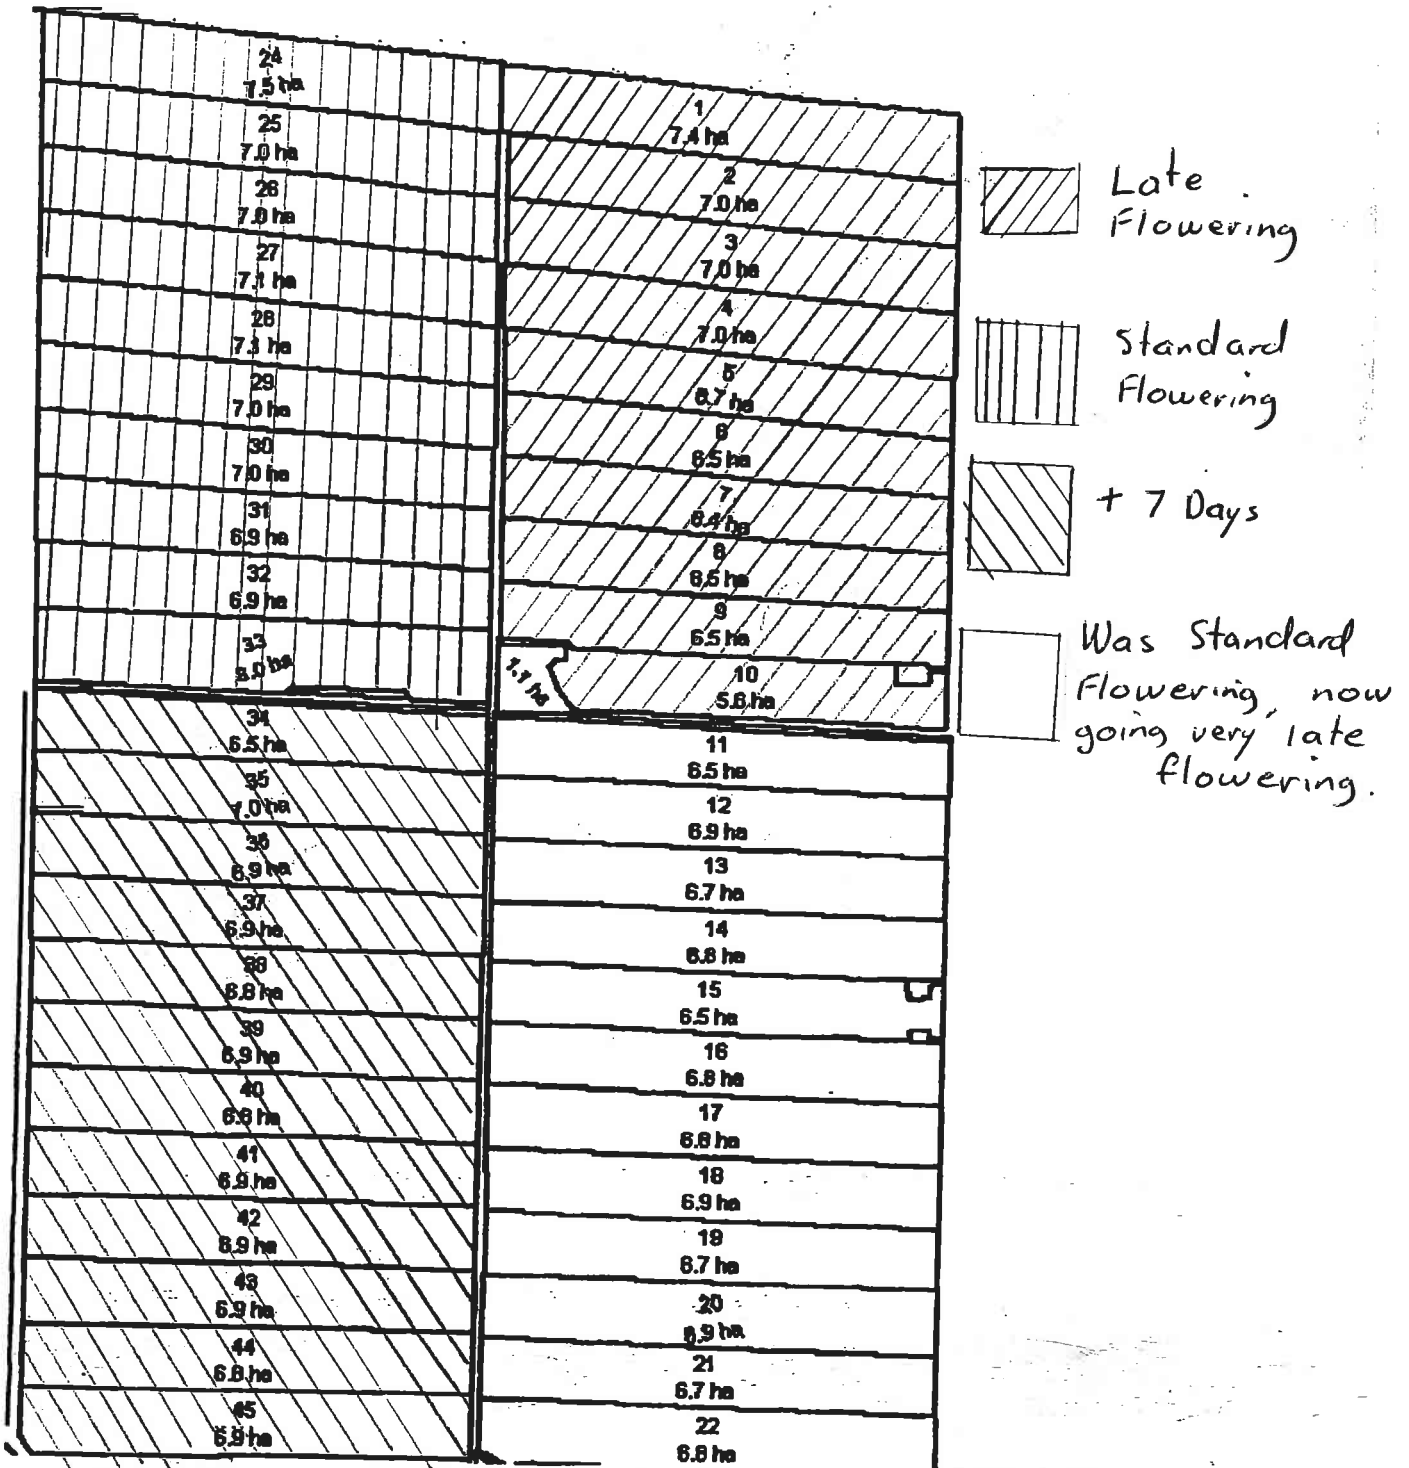 24
7.5 ha
25
7.0 ha
26
7.0 ha
27
7.1 ha
28
7.1 ha
29
7.0 ha
30
7.0 ha
31
6.9 ha
32
6.9 ha
33
34
6.5 ha
35
36
6.9 ha
37
6.9 ha
38
6.8 ha
39
6.9 ha
40
6.8 ha
41
6.9 ha
42
6.9 ha
43
6.9 ha
44
6.8 ha
45
6.9 ha
1
7.4 ha
2
7.0 ha
3
7.0 ha
4
7.0 ha
5
6.7 ha
6
6.5 ha
7
6.4 ha
8
6.5 ha
9
6.5 ha
1.7 ha
10
11
6.5 ha
12
6.9 ha
13
6.7 ha
14
6.8 ha
15
6.5 ha
16
6.8 ha
17
6.8 ha
18
6.9 ha
19
6.7 ha
20
6.9 ha
21
6.7 ha
22
6.8 ha
Late
Flowering
Standard
Flowering
+ 7 Days
Was Standard
Flowering, now
going very late
flowering.